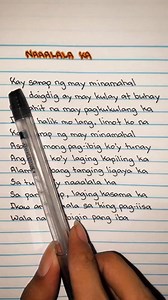 NAAALALA KA
Kay sarap ng may minamahal
daigdig ay may kulay at buhay
na may pagkukulang ka
halik mo lang, limot ko na
ng may minamahal
mong pag-ibig ko'y tunay
ko'y laging kapiling ka
tanging ligaya ka
Sa naaalala ka
Sa laging kasama ka
Ikaw alaala sa 'king pag-iisa
Wala pang iba